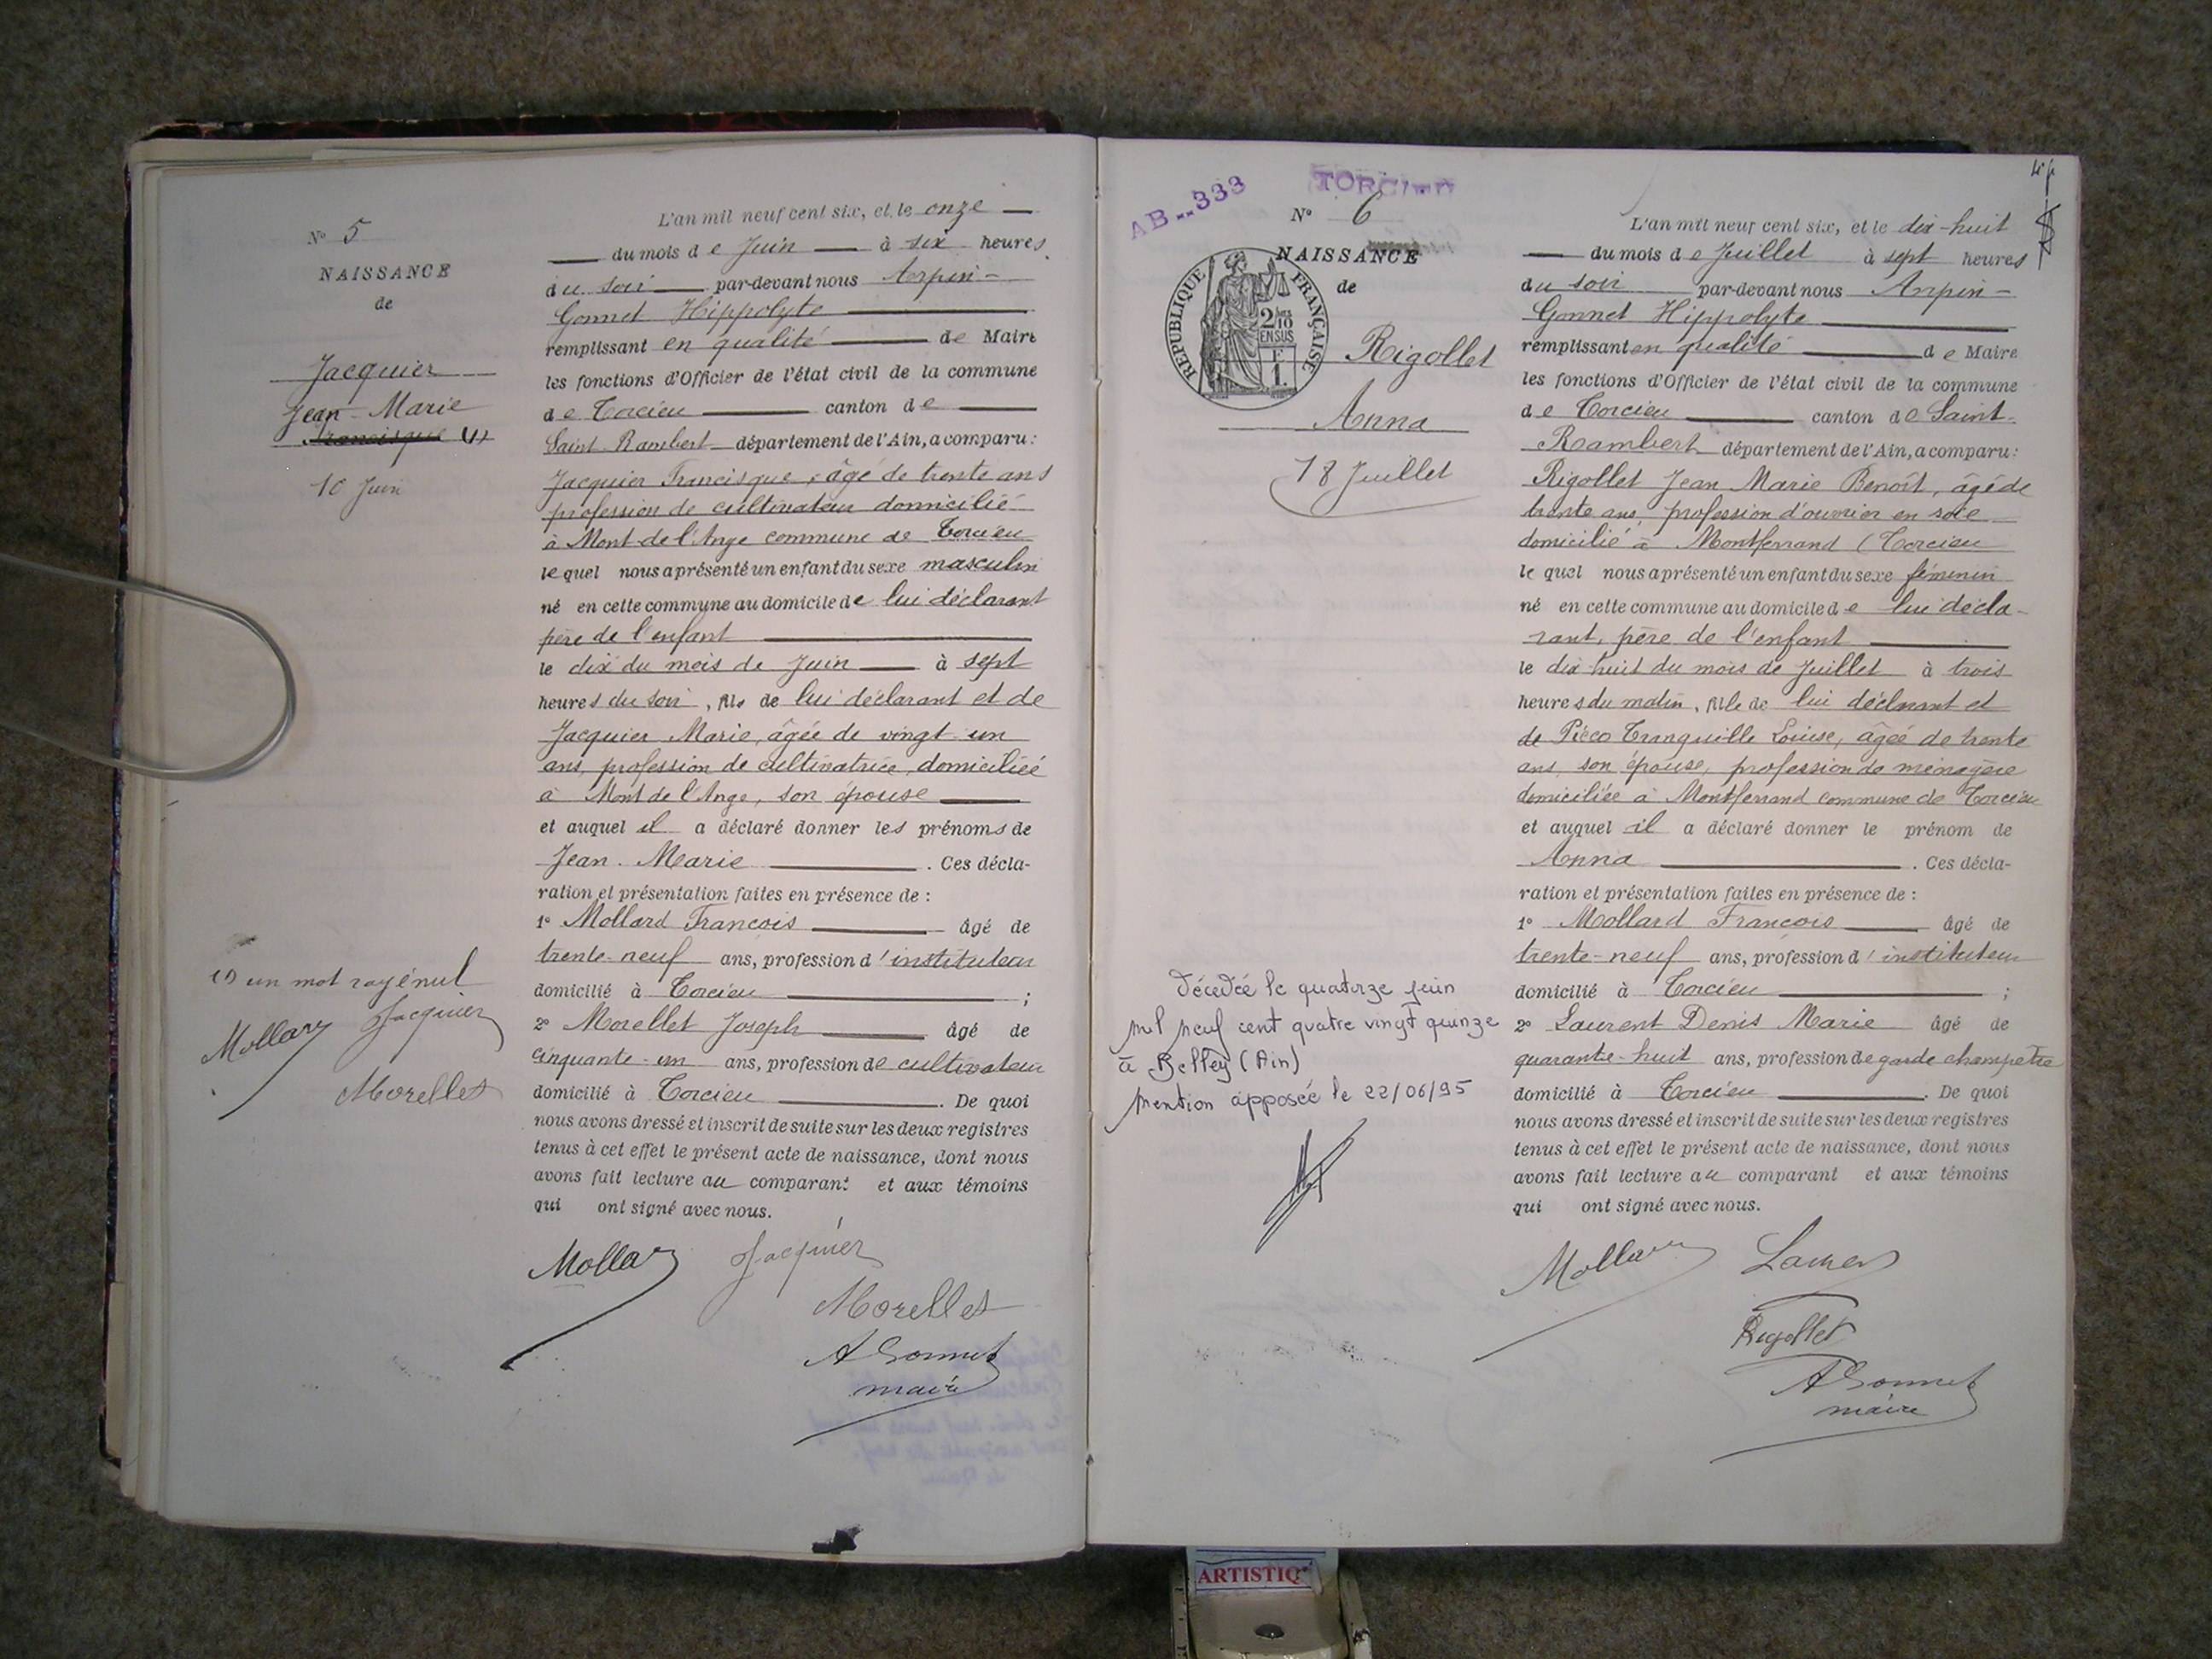 N° 5
NAISSANCE
de
Jacquier
Jean-Marie
Francisque (1)
10 Juin
(1) un mot rayé nul
Mollard Jacquier
Morellet
L'an mil neuf cent six, et le onze
du mois de Juin à six heures
du soir par-devant nous Arpin-
Gonnet Hippolyte
remplissant en qualité de Maire
les fonctions d'Officier de l'état civil de la commune
de Torcieu canton de
Saint-Rambert département de l'Ain, a comparu :
Jacquier Francisque, âgé de trente ans
profession de cultivateur domicilié
à Mont-de l'Ange commune de Torcieu
lequel nous a présenté un enfant du sexe masculin
né en cette commune au domicile de lui déclarant
père de l'enfant
le dix du mois de Juin à sept
heures du soir, fils de lui déclarant et de
Jacquier Marie, âgée de vingt-un
ans, profession de cultivatrice, domiciliée
à Mont de l'Ange, son épouse
et auquel il a déclaré donner les prénoms de
Jean-Marie . Ces décla-
ration et présentation faites en présence de :
1° Mollard François âgé de
trente-neuf ans, profession d'instituteur
domicilié à Torcieu ;
2° Morellet Joseph âgé de
cinquante-un ans, profession de cultivateur
domicilié à Torcieu . De quoi
nous avons dressé et inscrit de suite sur les deux registres
tenus à cet effet le présent acte de naissance, dont nous
avons fait lecture au comparant et aux témoins
qui ont signé avec nous.
Mollard Jacquier
Morellet
A Gonnet
maire
AB--333 TORCIEU
N° 6
NAISSANCE
de
RÉPUBLIQUE FRANÇAISE
2/10
EN SUS
1 F.
Rigollet
Anna
18 Juillet
Décédée le quatorze juin
mil neuf cent quatre vingt quinze
à Belley (Ain)
mention apposée le 22/06/95
L'an mil neuf cent six, et le dix-huit
du mois de Juillet à sept heures
du soir par-devant nous Arpin-
Gonnet Hippolyte
remplissant en qualité de Maire
les fonctions d'Officier de l'état civil de la commune
de Torcieu canton de Saint-
Rambert département de l'Ain, a comparu :
Rigollet Jean Marie Benoît, âgé de
trente ans, profession d'ouvrier en soie
domicilié à Montferrand (Torcieu
lequel nous a présenté un enfant du sexe féminin
né en cette commune au domicile de lui décla-
rant, père de l'enfant
le dix huit du mois de Juillet à trois
heures du matin, fille de lui déclarant et
de Picco Tranquille Louise, âgée de trente
ans, son épouse, profession de ménagère
domiciliée à Montferrand commune de Torcieu
et auquel il a déclaré donner le prénom de
Anna . Ces décla-
ration et présentation faites en présence de :
1° Mollard François âgé de
trente-neuf ans, profession d'instituteur
domicilié à Torcieu ;
2° Laurent Denis Marie âgé de
quarante-huit ans, profession de garde champêtre
domicilié à Torcieu . De quoi
nous avons dressé et inscrit de suite sur les deux registres
tenus à cet effet le présent acte de naissance, dont nous
avons fait lecture au comparant et aux témoins
qui ont signé avec nous.
Mollard Laurent
Rigollet
A Gonnet
maire
ARTISTIQ